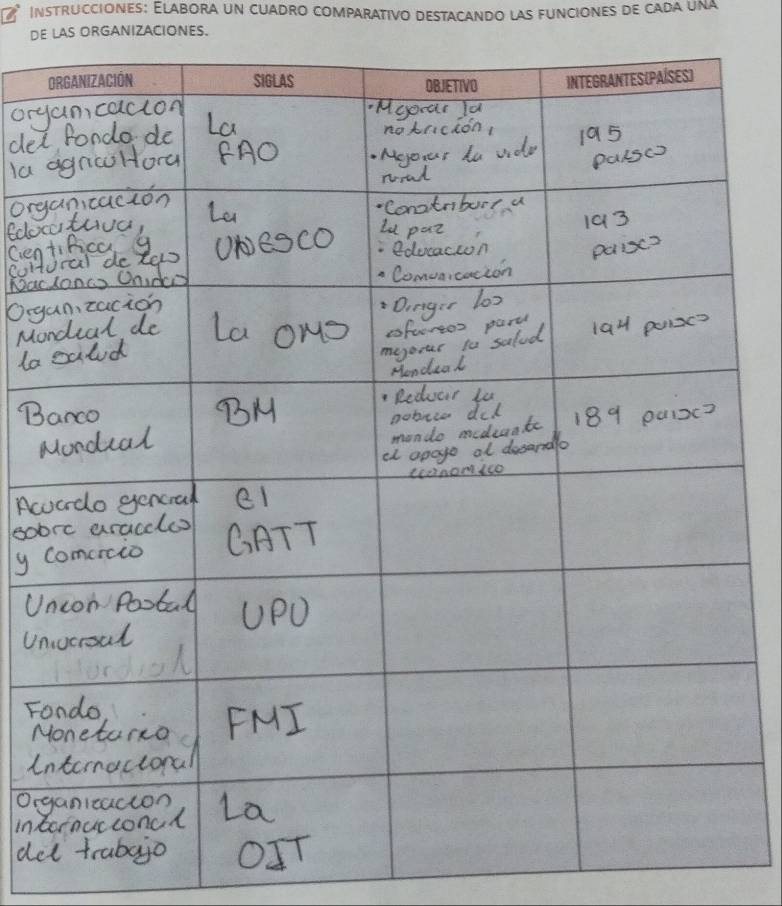 INSTRUCCIONES: ELABORA UN CUADRO COMPARATIVO DESTACANDO LAS FUNCIONES DE CADA UNA
DE LAS ORGANIZACIONES.
ORGANIZACIÓN SIGLAS OBJETIVO INTEGRANTES(PAÍSES)
organicacion
del fondo de
la agricultora
La
FAO
• Mejorar la
notricion,
• Mejorar la vida
rural
195
paises
organicación
Educativa,
Cientifica y
cultural de las
Naciones Unidas
La
UNESCO
• Conotriburr a
la paz
• educacion
• Comunicación
193
paises
Organización
Mondial de
la salud
La OMS
• Dirigir los
esfuerzos para
mejorar la salud
Mondial
194 paises
Banco
Mundial
BM
• Reducir la
pobreza del
mondo mediante
el apoyo al desarrollo
economico
189 paises
Acuerdo general
sobre araceles
y Comercio
el
GATT
Union Postal
Universal
Mundial
UPU
Fondo
Monetario
Internacional
FMI
Organizacion
internacional
del trabajo
La
OIT